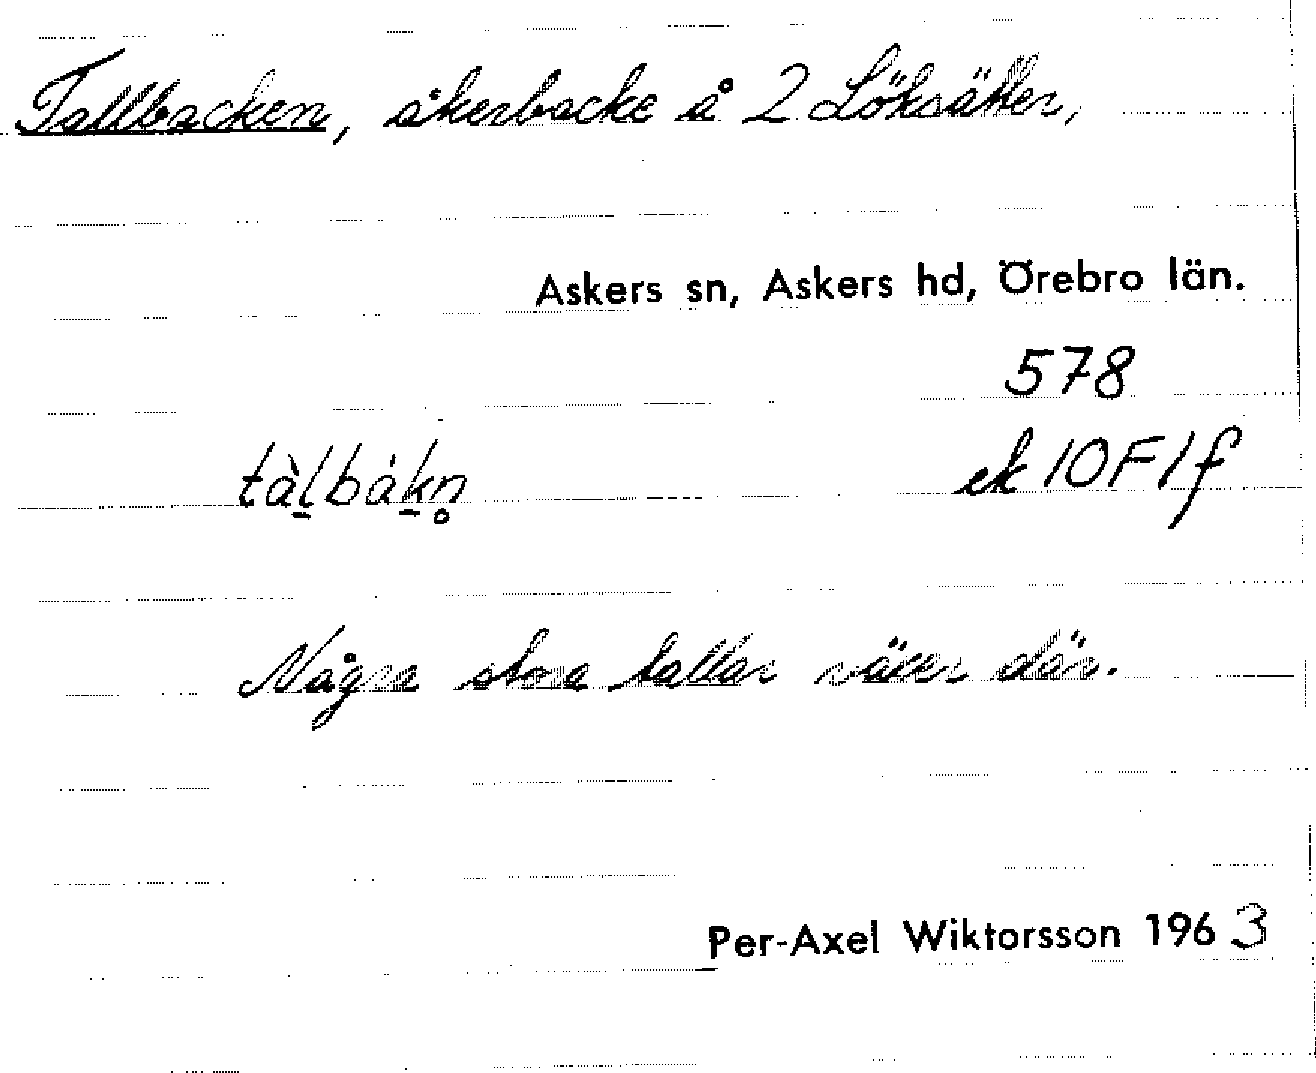 Tallbacken, åkerbacke å 2 Löksätter,
Askers sn, Askers hd, Örebro län.
578
tàl̠bák̠n̥ ek 10F1f
Några stora tallar växer där.
Per-Axel Wiktorsson 1963